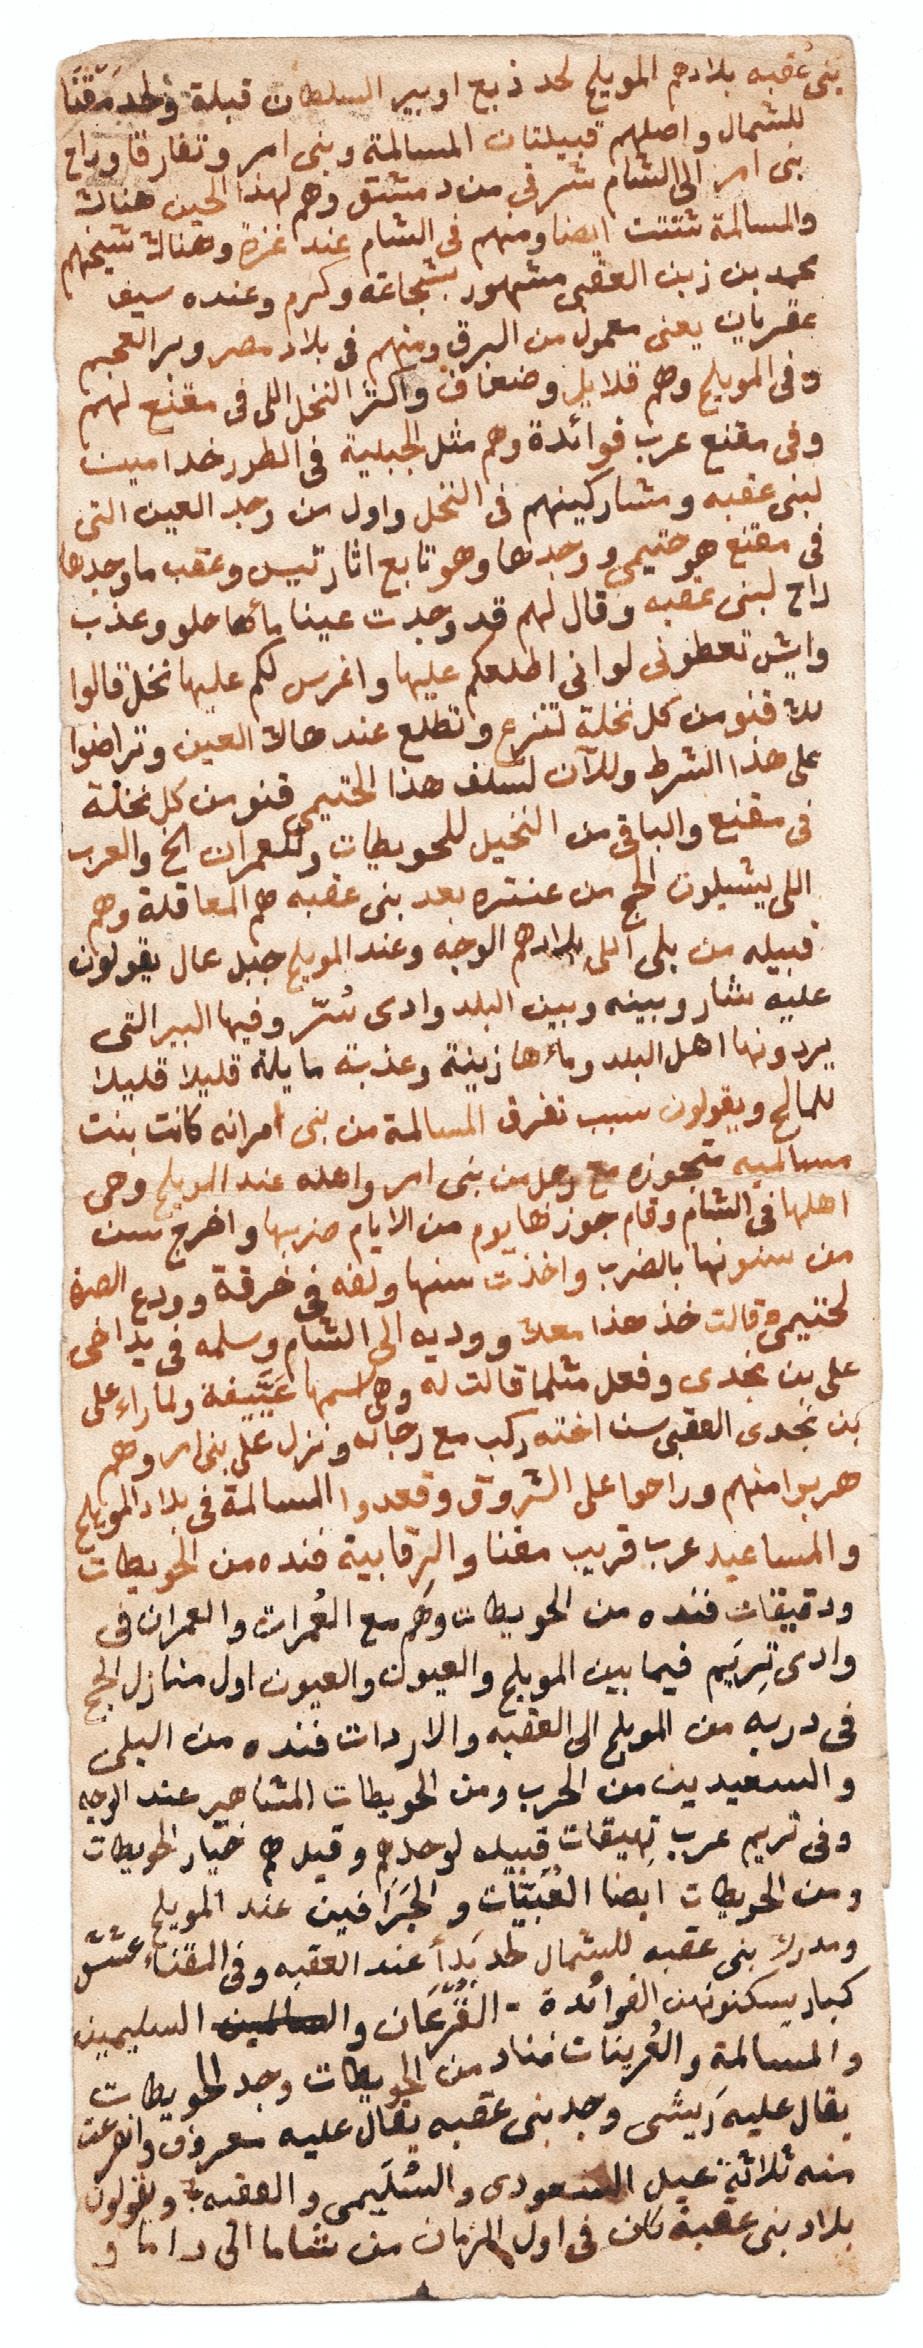 بنى عُقبه بلادهم المويلح لحد ذبع او بير السلطان قبلة ولحد مَقْنَا
للشمال واصلهم قبيلتان المسالمة وبنى امر وتفارقا وراح
بنى امر الى الشام شرقى من دمشق وهم لهذا الحين هناك
والمسالمة شتتت ايضا ومنهم فى الشام عند غزة وهناك شيخهم
محمد بن زبن العقبى مشهور بشجاعه وكرم وعنده سيف
عقربان يعنى معمول من البرق ومنهم فى بلاد مصر وبر العجم
وفى المويلح وهم قلايل وضعاف واكثر النخل اللى فى مقنع لهم
وفى مقنع عرب فوائدة وهم مثل الجبلية فى الطور خدامين
لبنى عقبه ومشاركينهم فى النخل واول من وجد العين التى
فى مقنع هو حتيمى ووجدها وهو تابع اثار تيس وعقب ما وجدها
راح لبنى عقبه وقال لهم قد وجدت عينا مأها حلو وعذب
وايش تعطونى لوانى اطلعكم عليها واغرس لكم عليها نخل قالوا
لك قنو من كل نخلة تنزع وتطلع عند هاك العين وتراضوا
على هذا الشرط وللآن لسلف هذا الحتيمى قنو من كل نخلة
فى مقنع والباقى من النخيل للحويطات وللعمران الخ والعرب
اللى يشيلون الحج من عنتره بعد بنى عقبه هم المعاقلة وهم
قبيله من بلى اللى بلادهم الوجه وعند المويلح جبل عال يقولون
عليه شار وبينه وبين البلد وادى سُرّ وفيها البير التى
يردونها اهل البلد وماءها زينة وعذبة مايلة قليلا قليلا
للمالح ويقولون سبب تفرق المسالمة من بنى امر انه كانت بنت
مسالميه متجوزه مع رجل من بنى امر واهله عند المويلح وهى
اهلها فى الشام وقام جوزها يوم من الايام ضربها واخرج سن
من سنونها بالضرب واخذت سنها ولفه فى خرقة وودع الصرة
لحتيمى وقالت خذ هذا معك ووديه الى الشام وسلمه فى يد اخى
على بن نجدى وفعل مثلما قالت له وهى اسمها عَيَّيفة ولما راء على
بن نجدى العقبى سن اخته ركب مع رجاله ونزل على بنى امر وهم
هربوا منهم وراحوا على الشروق وقعدوا المسالمة فى بلاد المويلح
والمساعيد عرب قريب مقنا والرقابية فنده من الحويطات
ودقيقات فنده من الحويطات وهَم مع العُمران والعمران فى
وادى تِرِيَم فيما بين المويلح والعيون والعيون اول منازل الحج
فى دربه من المويلح الى العقبه والاردات فنده من البلى
والسعيدين من الحرب ومن الحويطات المشاهير عند الوجه
وفى تريم عرب تهيقات قبيله لوحدهم وقيل هم خيار الحويطات
ومن الحويطات ايضا العُبَيَّات والجَرَافين عند المويلح
ومدرك بنى عقبه للشمال لحد بَدأ عند العقبه وفى المقناء عشش
كبار يسكنونهن الفوائدة - القُرعَان والسالمين السليميين
والمسالمة والعُرينات فناد من الحويطات وجد الحويطات
يقال عليه رَيشى وجد بنى عقبه يقال عليه معروف وانفرعت
منه ثلاثة عيل السعودى والسُليَمى والعقبه ويقولون
بلاد بنى عقبة كان فى اول الزمان من شاما الى داما و